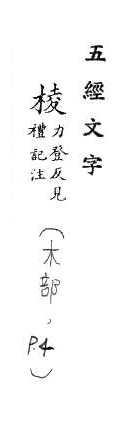 五經文字
棱力登反見
禮記注
(木部,
P.4)